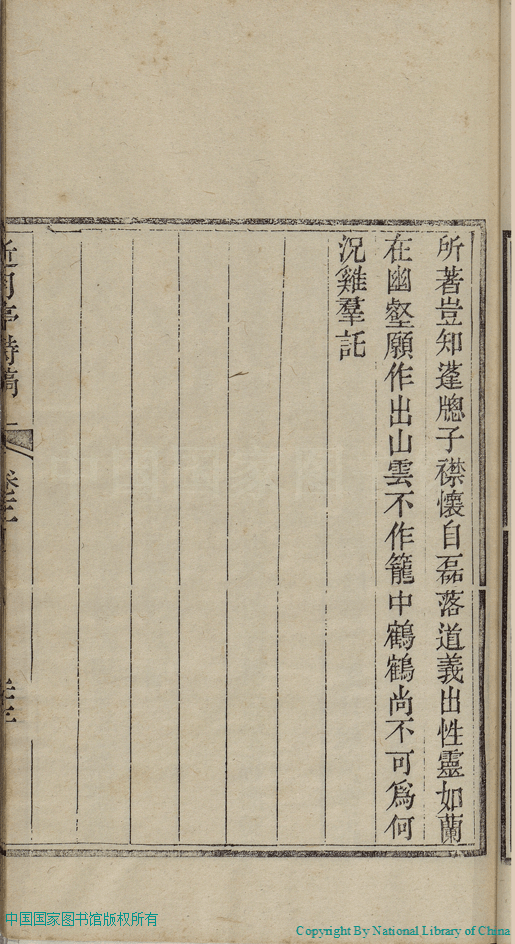 所著豈知蓬牕子襟懷自磊落道義出性靈如蘭
在幽壑願作出山雲不作籠中鶴鶴尚不可為何
況雞羣託
詩稿
中国国家图
中国国家图书馆版权所有
Copyright By National Library of China